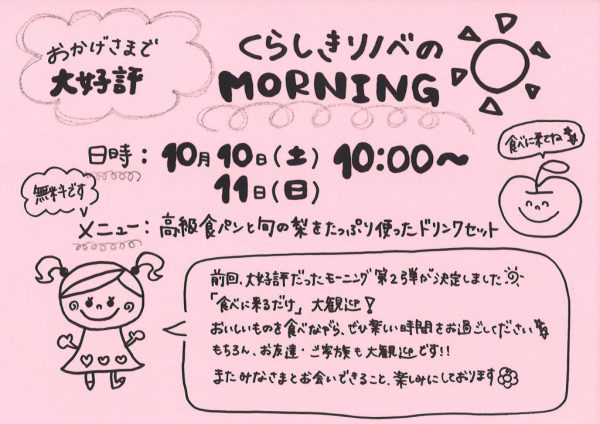 おかげさまで
大好評
くらしきリノベの
MORNING
食べに来てね
日時：10月10日(土) 10:00〜
11日(日)
無料です
メニュー：高級食パンと旬の梨をたっぷり使ったドリンクセット
前回、大好評だったモーニング第2弾が決定しました
「食べに来るだけ」大歓迎!
おいしいものを食べながら、ぜひ楽しい時間をお過ごしください
もちろん、お友達・ご家族も大歓迎です!!
またみなさまとお会いできること、楽しみにしております